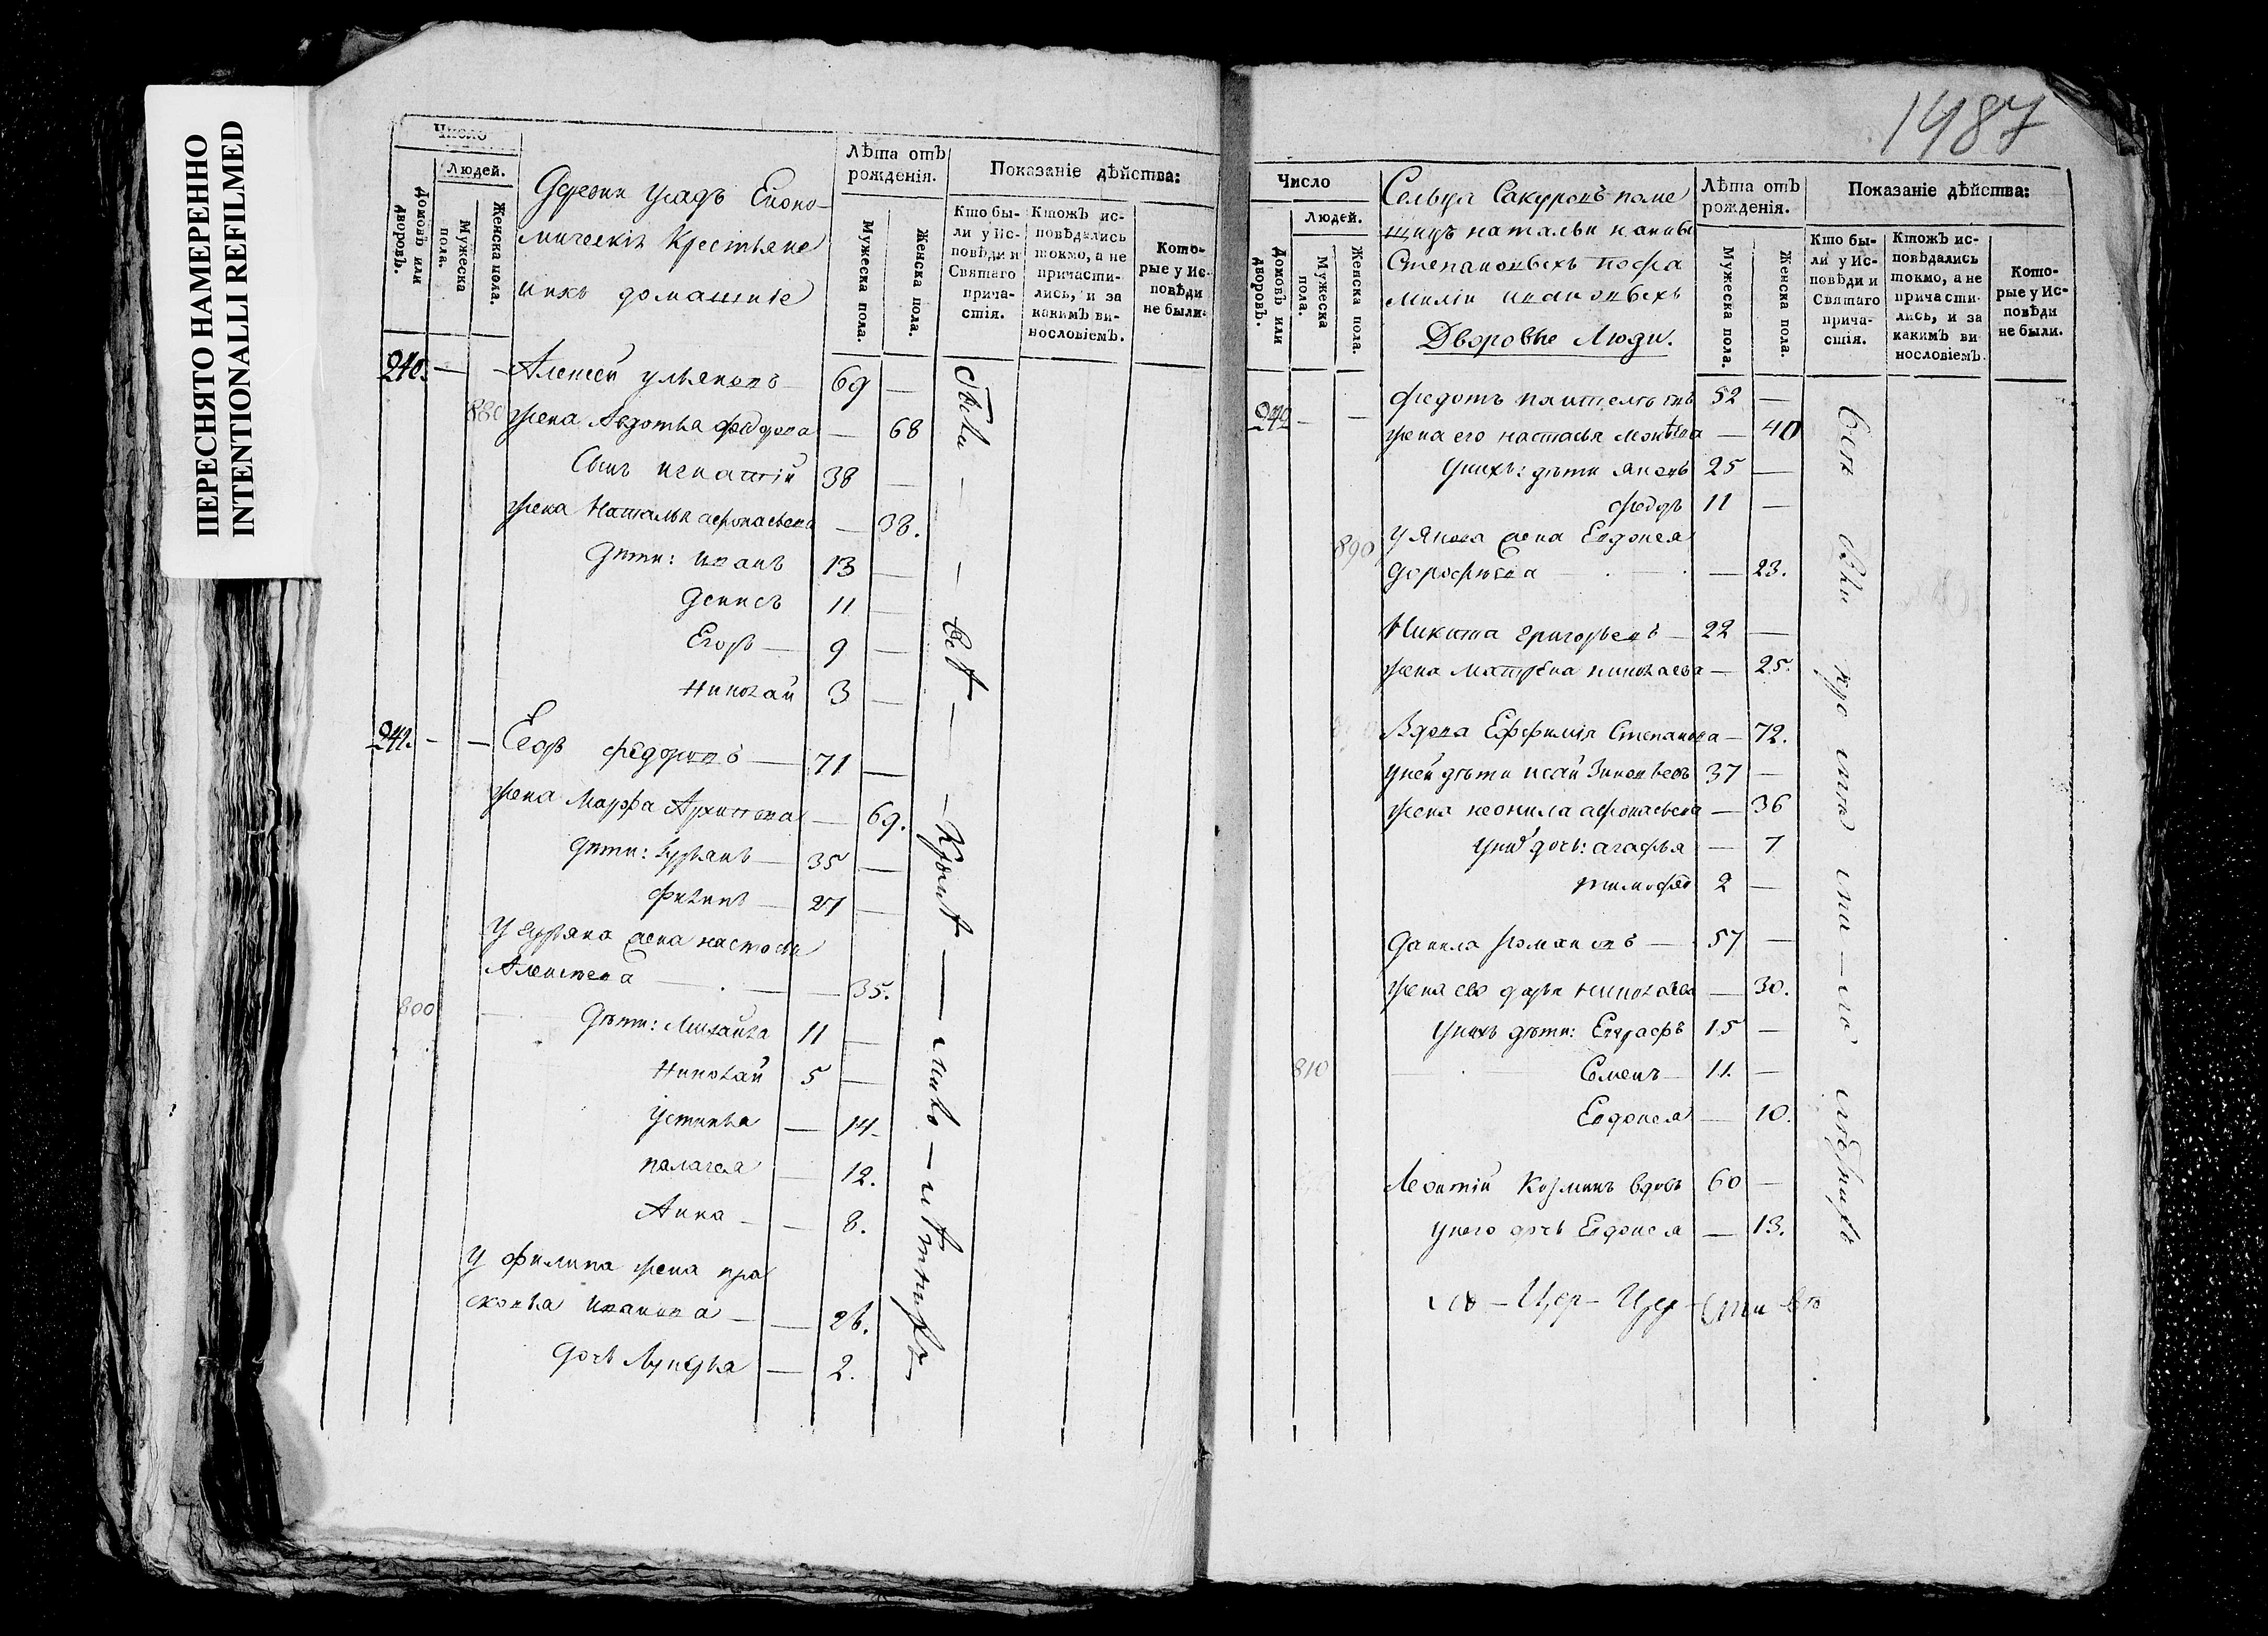 ПЕРЕСНЯТО НАМЕРЕННО
INTENTIONALLI REFILMED
Число
Людей.
Домовъ или дворовъ.
Мужеска пола.
Женска пола.
Экономическія Крестьяне
ихъ домашніе
Лѣта отъ рожденія.
Мужеска пола.
Женска пола.
Показаніе дѣйства:
Кто бы-
ли у Ис-
повѣди и
Святаго
прича-
стія.
Ктожъ ис-
повѣдались
токмо, а не
причасти-
лись, и за
какимъ ви-
нословіемъ.
Кото-
рые у Ис-
повѣди
не были.
240. — — Алексей ульяновъ 69 —
880 жена Авдотья федорова — 68
Сынъ игнатій 38 —
жена Наталья афонасьева — 38.
Дѣти: иванъ 13 —
Денисъ 11 —
Егоръ — 9 —
Николай 3 —
241. — — Егоръ федоровъ — 71 —
жена Марфа Архипова — 69.
Дѣти: — 35 —
Филипъ — 27 —
жена настасья
Алексеева — 35.
800 Дѣти: Михайла 11 —
Николай 5 —
Устинья — 14.
палагея — 12.
Анна — 8.
У филипа жена пра
сковья иванова — 26.
дочь Лукерья — 2.
1487
Число
Людей.
Домовъ или дворовъ.
Мужеска пола.
Женска пола.
Сельца Сакуровъ поме
щицъ натальи и анны
Степановыхъ по фа
миліи ивановыхъ
Дворовые Люди.
Лѣта отъ рожденія.
Мужеска пола.
Женска пола.
Показаніе дѣйства:
Кто бы-
ли у Ис-
повѣди и
Святаго
прича-
стія.
Ктожъ ис-
повѣдались
токмо, а не
причасти-
лись, и за
какимъ ви
нословіемъ.
Кото-
рые у Ис-
повѣди
не были.
242 — — федотъ пантелеевъ 52 —
жена его настасья — 40
У нихъ: дѣти яковъ 25 —
федоръ 11 —
890 У якова жена Евдокея
дорофѣева — 23.
Никита григорьевъ — 22 —
жена Матрена николаева — 25.
Вдова Ефимія Степанова — 72.
У ней дѣти исай Зиновьевъ 37 —
жена неонила афонасьева — 36
дочь: агафья — 7
тимофей 2 —
данила романовъ — 57 —
жена ево дарья николаева — 30.
У нихъ дѣти: Евграфъ 15 —
810 Семенъ — 11. —
Евдокея — 10.
Леонтій Козминъ вдовъ 60 —
У него дочь Евдокея — 13.